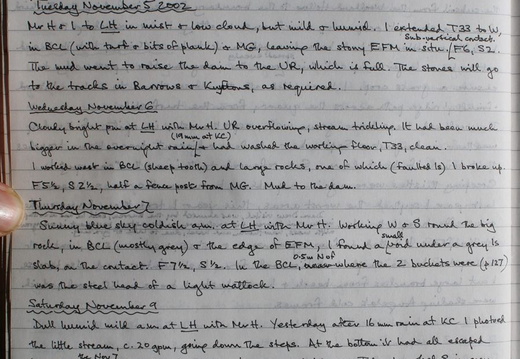 Tuesday November 5 2002
Mr H & I to LH in mist & low cloud, but mild & humid. I extended T33 to W,
in BCL (with turf & bits of plank) & MG, leaving the stony EFM in situ. Sub-vertical contact. F6, S2.
The mud went to raise the dam to the UR, which is full. The stones will go
to the tracks in Barrows & Knottons, as required.
Wednesday November 6
Cloudy bright pm at LH with Mr H. UR overflowing, stream trickling. It had been much
bigger in the overnight rain (19mm at KC) & had washed the working floor, T33, clean.
I worked west in BCL (sheep tooth) and large rocks, one of which (faulted ls) I broke up.
F5½, S2½, half a fence post from MG. Mud to the dam.
Thursday November 7
Sunny blue sky coldish a.m. at LH with Mr H. Working W & S round the big
rock, in BCL (mostly grey) & the edge of EFM, I found a small void under a grey ls
slab, on the contact. F7½, S½. In the BCL, 0.5m N of where the 2 buckets were (p127)
was the steel head of a light mattock.
Saturday November 9
Dull humid mild a.m at LH with Mr H. Yesterday after 16mm rain at KC I photoed
the little stream, c. 20gpm, going down the steps. At the bottom it had all escaped
the Nov 7